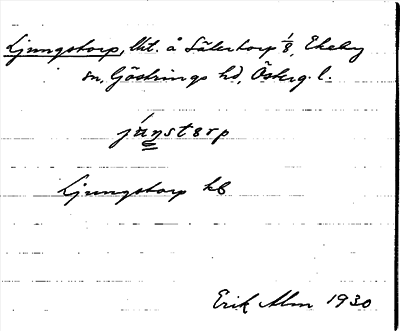 Ljungstorp, lht. å Sätertorp 1/8, Ekeby
sn, Göstrings hd, Österg. l.
jáŋstørp
Ljungstorp hb
Erik Alm 1930